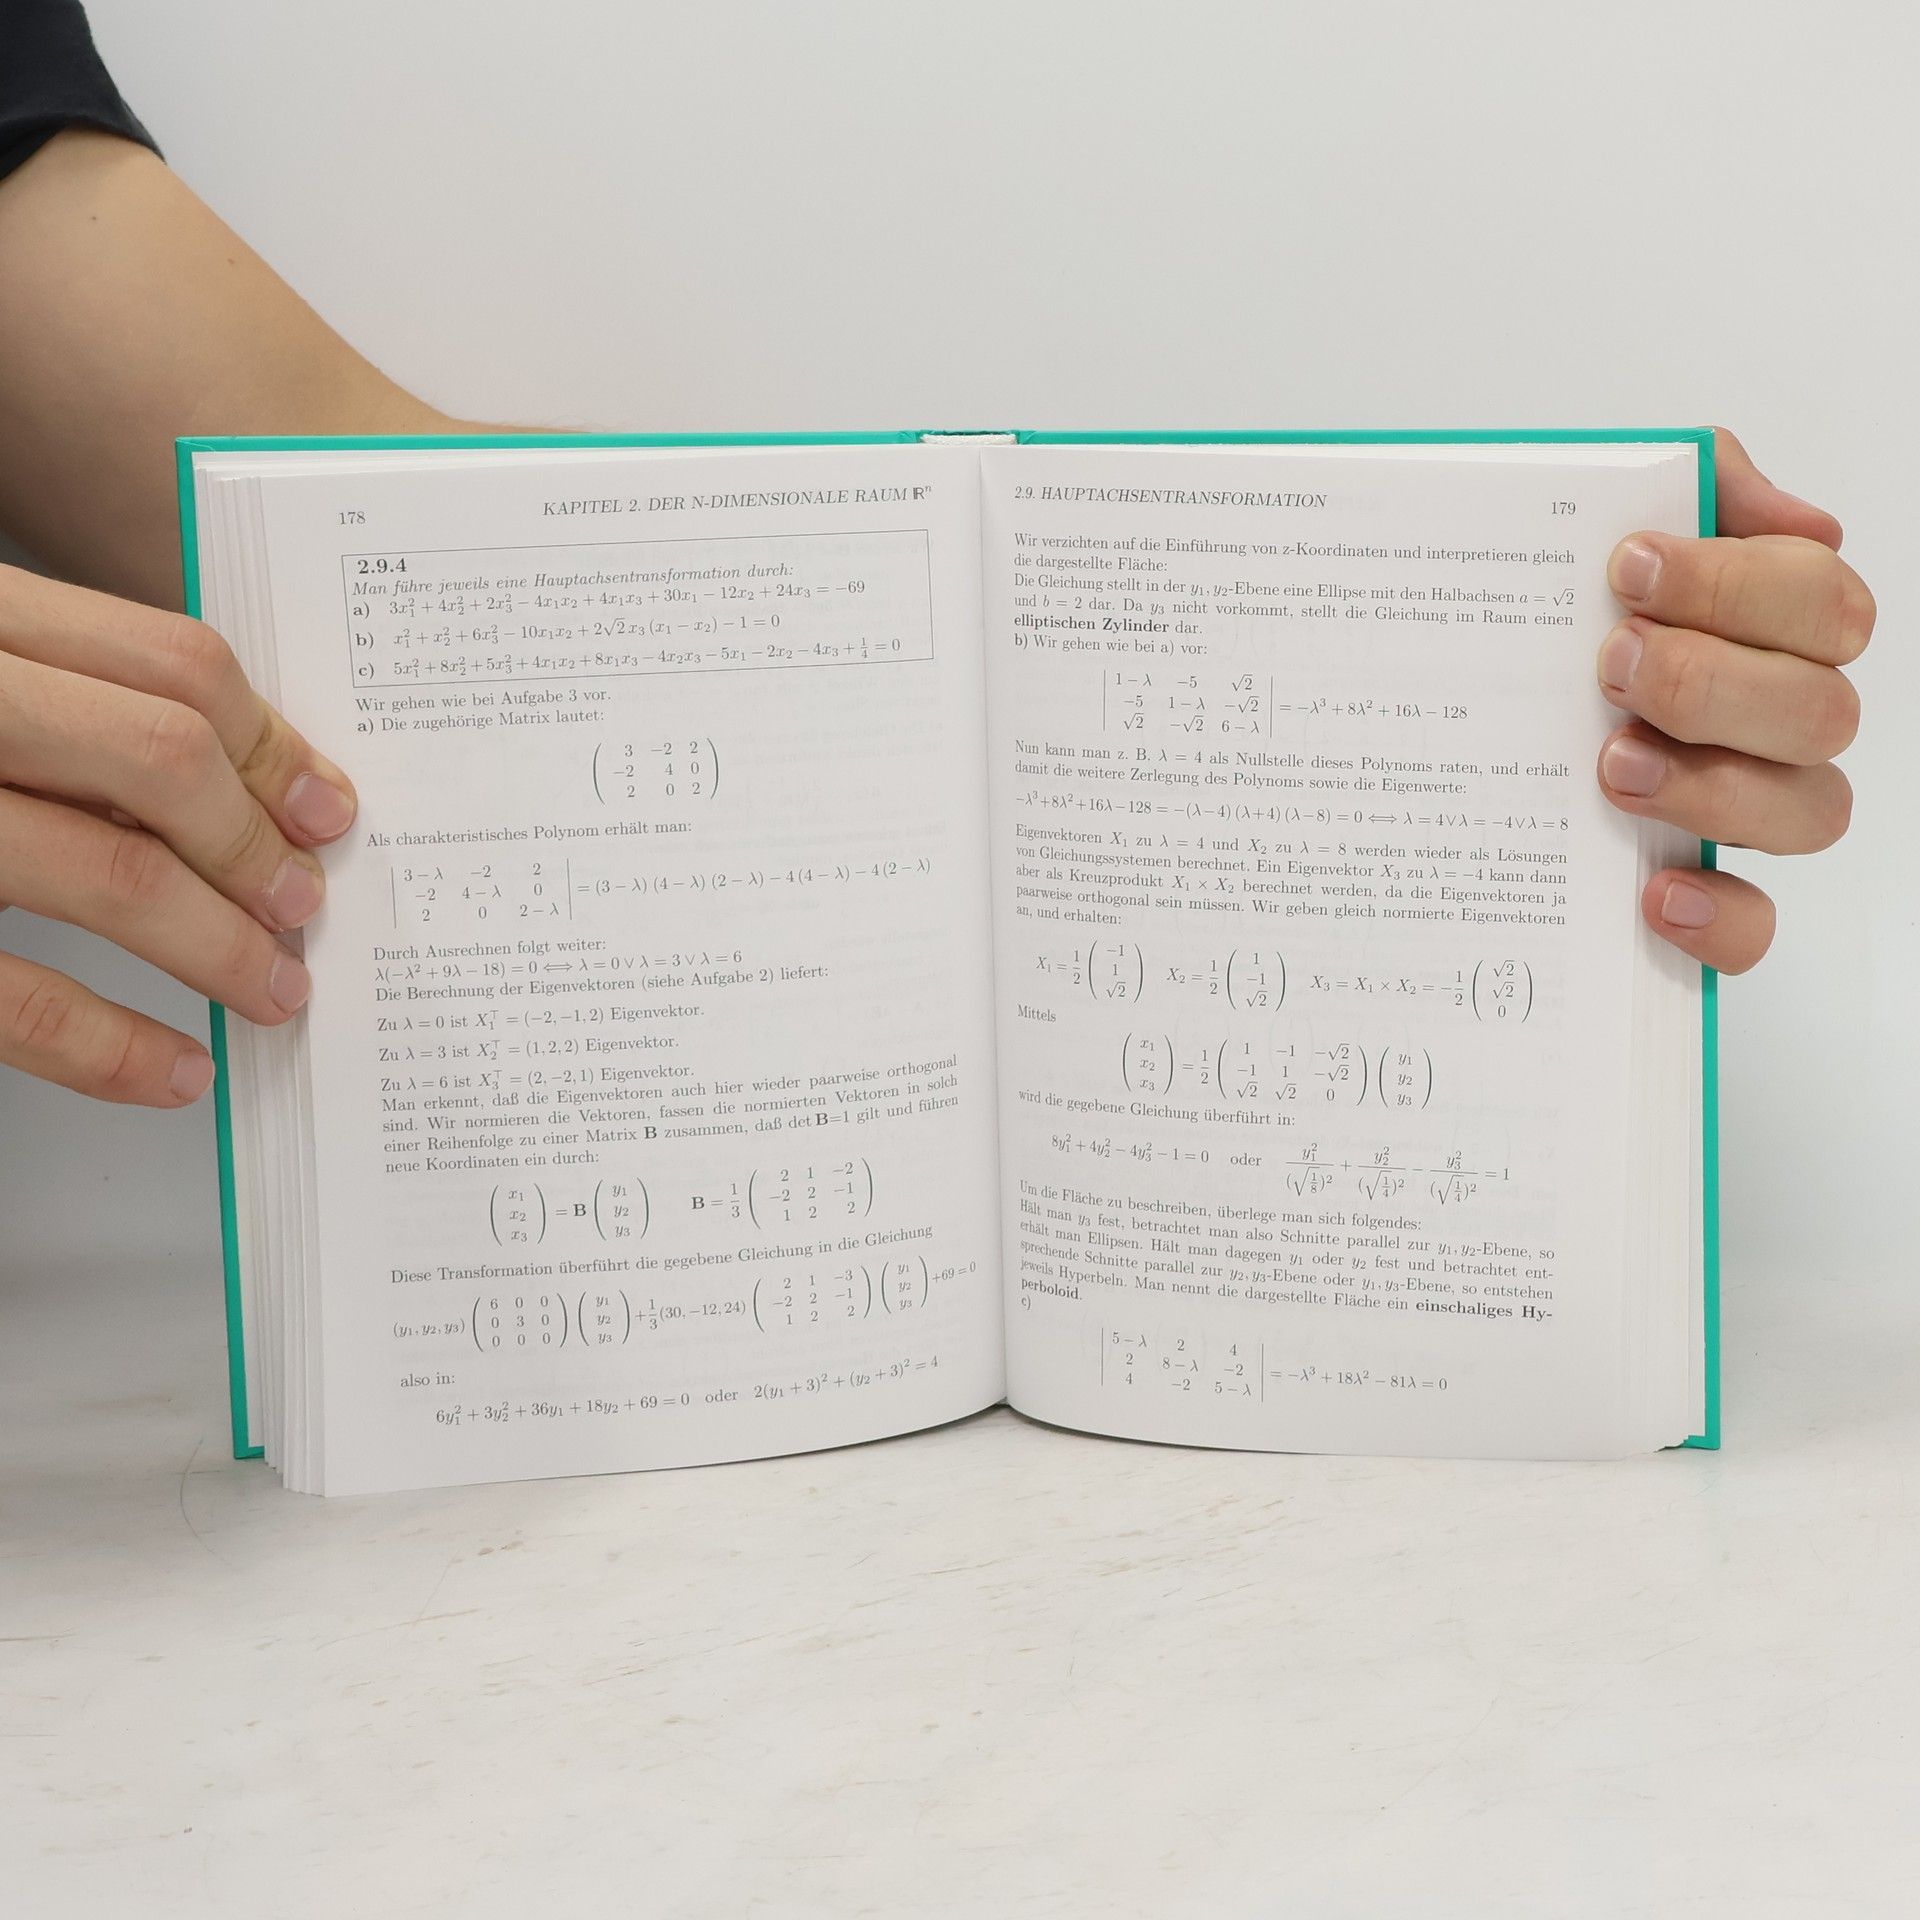 178 KAPITEL 2. DER N-DIMENSIONALE RAUM ℝⁿ
2.9.4
Man führe jeweils eine Hauptachsentransformation durch:
a) 3x₁² + 4x₂² + 2x₃² − 4x₁x₂ + 4x₁x₃ + 30x₁ − 12x₂ + 24x₃ = −69
b) x₁² + x₂² + 6x₃² − 10x₁x₂ + 2√2 x₃ (x₁ − x₂) − 1 = 0
c) 5x₁² + 8x₂² + 5x₃² + 4x₁x₂ + 8x₁x₃ − 4x₂x₃ − 5x₁ − 2x₂ − 4x₃ + 1/4 = 0
Wir gehen wie bei Aufgabe 3 vor.
a) Die zugehörige Matrix lautet:
3 −2 2
−2 4 0
2 0 2
Als charakteristisches Polynom erhält man:
3 − λ −2 2
−2 4 − λ 0 = (3 − λ) (4 − λ) (2 − λ) − 4 (4 − λ) − 4 (2 − λ)
2 0 2 − λ
Durch Ausrechnen folgt weiter:
λ(−λ² + 9λ − 18) = 0 ⟺ λ = 0 ∨ λ = 3 ∨ λ = 6
Die Berechnung der Eigenvektoren (siehe Aufgabe 2) liefert:
Zu λ = 0 ist X₁⊤ = (−2, −1, 2) Eigenvektor.
Zu λ = 3 ist X₂⊤ = (1, 2, 2) Eigenvektor.
Zu λ = 6 ist X₃⊤ = (2, −2, 1) Eigenvektor.
Man erkennt, daß die Eigenvektoren auch hier wieder paarweise orthogonal
sind. Wir normieren die Vektoren, fassen die normierten Vektoren in solch
einer Reihenfolge zu einer Matrix B zusammen, daß det B=1 gilt und führen
neue Koordinaten ein durch:
x₁ y₁ 2 1 −2
x₂ = B y₂ B = 1/3 −2 2 −1
x₃ y₃ 1 2 2
Diese Transformation überführt die gegebene Gleichung in die Gleichung
6 0 0 y₁ 2 1 −3 y₁
(y₁, y₂, y₃) 0 3 0 y₂ + 1/3 (30, −12, 24) −2 2 −1 y₂ +69 = 0
0 0 0 y₃ 1 2 2 y₃
also in:
6y₁² + 3y₂² + 36y₁ + 18y₂ + 69 = 0 oder 2(y₁ + 3)² + (y₂ + 3)² = 4
2.9. HAUPTACHSENTRANSFORMATION 179
Wir verzichten auf die Einführung von z-Koordinaten und interpretieren gleich
die dargestellte Fläche:
Die Gleichung stellt in der y₁, y₂-Ebene eine Ellipse mit den Halbachsen a = √2
und b = 2 dar. Da y₃ nicht vorkommt, stellt die Gleichung im Raum einen
elliptischen Zylinder dar.
b) Wir gehen wie bei a) vor:
1 − λ −5 √2
−5 1 − λ −√2 = −λ³ + 8λ² + 16λ − 128
√2 −√2 6 − λ
Nun kann man z. B. λ = 4 als Nullstelle dieses Polynoms raten, und erhält
damit die weitere Zerlegung des Polynoms sowie die Eigenwerte:
−λ³+8λ²+16λ−128 = −(λ−4) (λ+4) (λ−8) = 0 ⟺ λ = 4 ∨ λ = −4 ∨ λ = 8
Eigenvektoren X₁ zu λ = 4 und X₂ zu λ = 8 werden wieder als Lösungen
von Gleichungssystemen berechnet. Ein Eigenvektor X₃ zu λ = −4 kann dann
aber als Kreuzprodukt X₁ × X₂ berechnet werden, da die Eigenvektoren ja
paarweise orthogonal sein müssen. Wir geben gleich normierte Eigenvektoren
an, und erhalten:
−1 1 √2
X₁ = 1/2 1 X₂ = 1/2 −1 X₃ = X₁ × X₂ = −1/2 √2
√2 √2 0
Mittels
x₁ 1 −1 −√2 y₁
x₂ = 1/2 −1 1 −√2 y₂
x₃ √2 √2 0 y₃
wird die gegebene Gleichung überführt in:
8y₁² + 4y₂² − 4y₃² − 1 = 0 oder y₁²/(√(1/8))² + y₂²/(√(1/4))² − y₃²/(√(1/4))² = 1
Um die Fläche zu beschreiben, überlege man sich folgendes:
Hält man y₃ fest, betrachtet man also Schnitte parallel zur y₁, y₂-Ebene, so
erhält man Ellipsen. Hält man dagegen y₁ oder y₂ fest und betrachtet ent-
sprechende Schnitte parallel zur y₂, y₃-Ebene oder y₁, y₃-Ebene, so entstehen
jeweils Hyperbeln. Man nennt die dargestellte Fläche ein einschaliges Hy-
perboloid.
c)
5 − λ 2 4
2 8 − λ −2 = −λ³ + 18λ² − 81λ = 0
4 −2 5 − λ